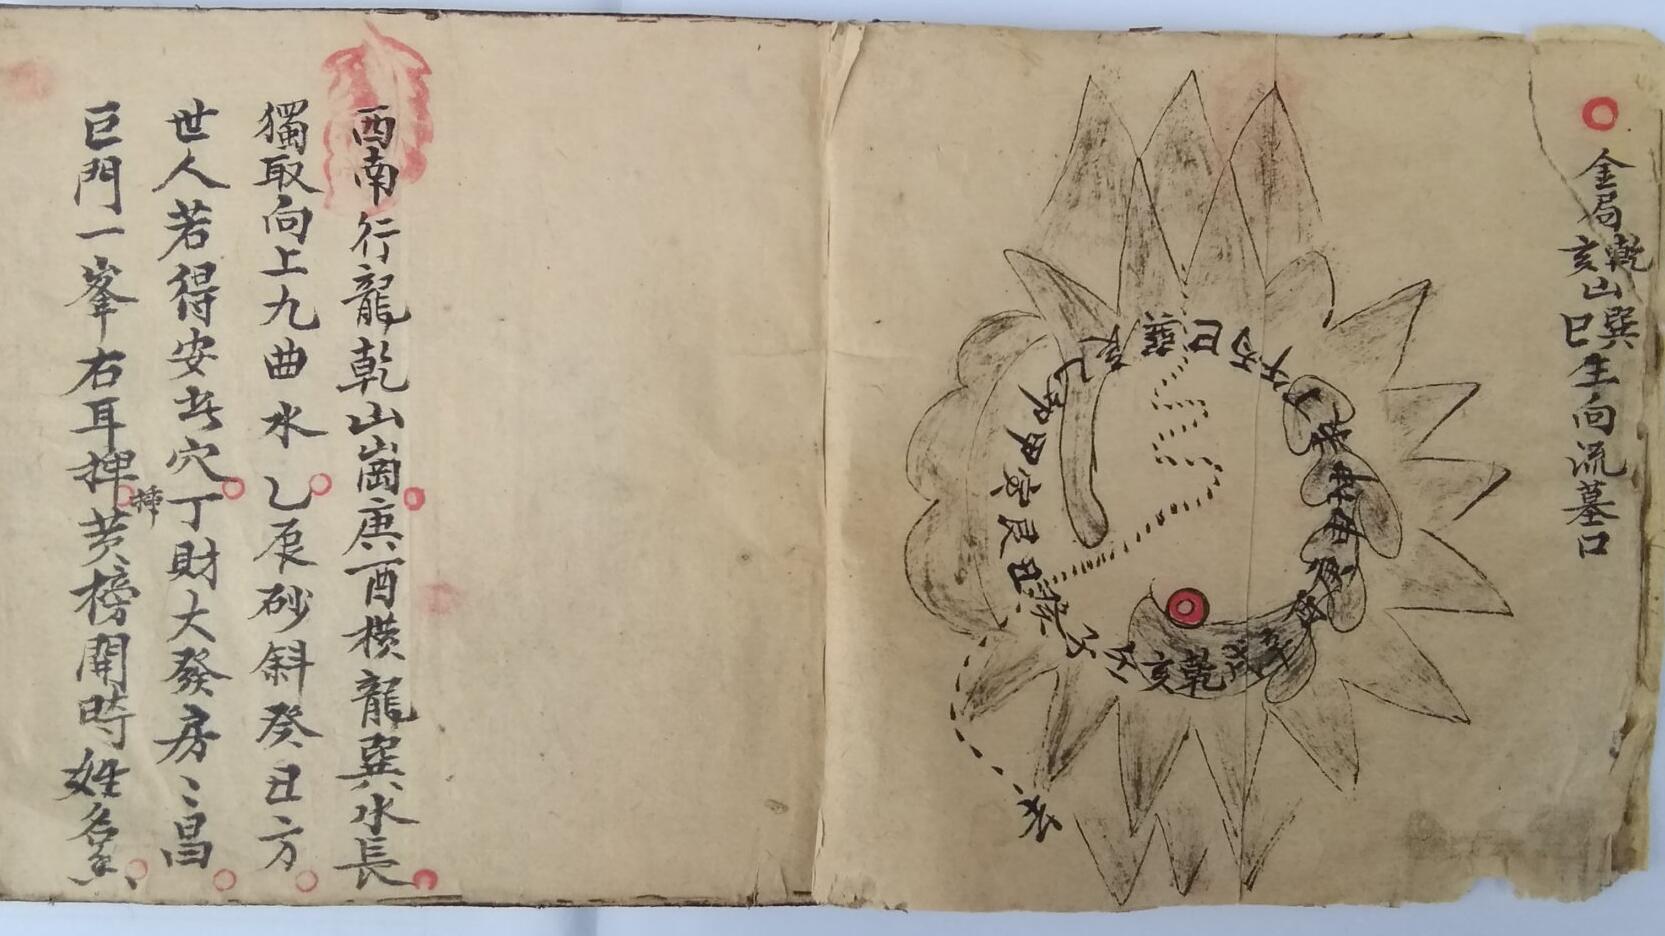 金局乾亥山巽巳生向流墓口
巳巽辰乙卯甲寅艮丑癸子壬亥乾戌辛酉庚申坤未丁午丙
水
西南行龍乾山崗庚酉橫龍巽水長
獨取向上九曲水乙辰砂斜癸丑方
世人若得安此穴丁財大發房〻昌
巨門一峯右耳捭黃榜開時姓名
插